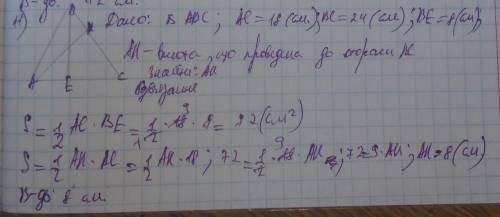 В-дь: 12 см.
4) B
K
Дано: Δ ABC; AC = 18 (см); BC = 24 (см); BE = 8 (см);
AK - висота, що проведена до сторони BC
A E C
Знайти: AK
Розв'язання
S = 1/2 AC · BE = 1/2 · 18 · 8 = 72 (см²)
9
S = 1/2 AK · BC = 1/2 AK · 18; 72 = 1/2 · 18 · AK; 72 = 9 · AK; AK = 8 (см)
9
В-дь: 8 см.